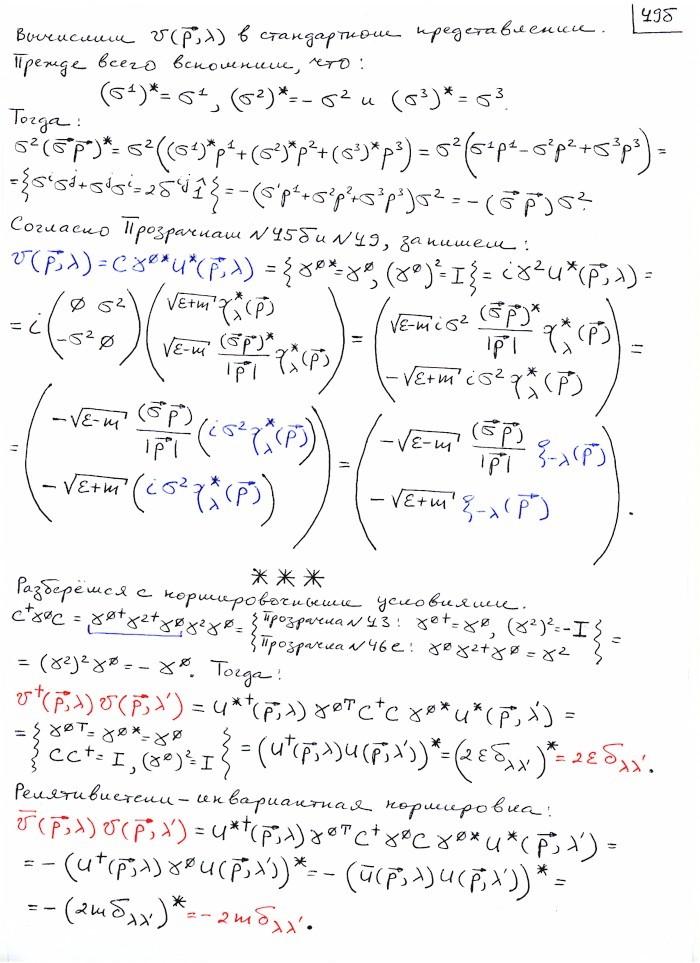 49б
Вычислим υ(p⃗,λ) в стандартном представлении.
Прежде всего вспомним, что:
(σ¹)* = σ¹, (σ²)* = - σ² и (σ³)* = σ³.
Тогда:
σ²(σ⃗p⃗)* = σ²((σ¹)*p¹+(σ²)*p²+(σ³)*p³) = σ²(σ¹p¹-σ²p²+σ³p³) =
= {σⁱσʲ+σʲσⁱ=2δⁱʲ1̂} = -(σ¹p¹+σ²p²+σ³p³)σ² = -(σ⃗p⃗)σ².
Согласно Прозрачкам N45б и N49, запишем:
υ(p⃗,λ) = Cγ⁰*u*(p⃗,λ) = {γ⁰*=γ⁰, (γ⁰)²=I} = iγ²u*(p⃗,λ) =
= i (0 σ² ; -σ² 0) (√ε+m χ*_λ(p⃗) ; √ε-m (σ⃗p⃗)*/|p⃗| χ*_λ(p⃗)) = (√ε-m iσ² (σ⃗p⃗)*/|p⃗| χ*_λ(p⃗) ; -√ε+m iσ² χ*_λ(p⃗)) =
= (-√ε-m (σ⃗p⃗)/|p⃗| (iσ²χ*_λ(p⃗)) ; -√ε+m (iσ²χ*_λ(p⃗))) = (-√ε-m (σ⃗p⃗)/|p⃗| ξ_-λ(p⃗) ; -√ε+m ξ_-λ(p⃗)).
* * *
Разберёмся с нормировочными условиями.
C†γ⁰C = γ⁰†γ²†γ⁰γ²γ⁰ = {Прозрачка N43: γ⁰†=γ⁰, (γ²)²=-I ; Прозрачка N46е: γ⁰γ²†γ⁰=γ²} =
= (γ²)²γ⁰ = -γ⁰. Тогда:
υ†(p⃗,λ)υ(p⃗,λ') = u*†(p⃗,λ)γ⁰ᵀC†Cγ⁰*u*(p⃗,λ') =
= {γ⁰ᵀ=γ⁰*=γ⁰ ; CC†=I, (γ⁰)²=I} = (u†(p⃗,λ)u(p⃗,λ'))* = (2εδ_λλ')* = 2εδ_λλ'.
Релятивистски-инвариантная нормировка:
ῡ(p⃗,λ)υ(p⃗,λ') = u*†(p⃗,λ)γ⁰ᵀC†γ⁰Cγ⁰*u*(p⃗,λ') =
= -(u†(p⃗,λ)γ⁰u(p⃗,λ'))* = -(ū(p⃗,λ)u(p⃗,λ'))* =
= -(2mδ_λλ')* = -2mδ_λλ'.